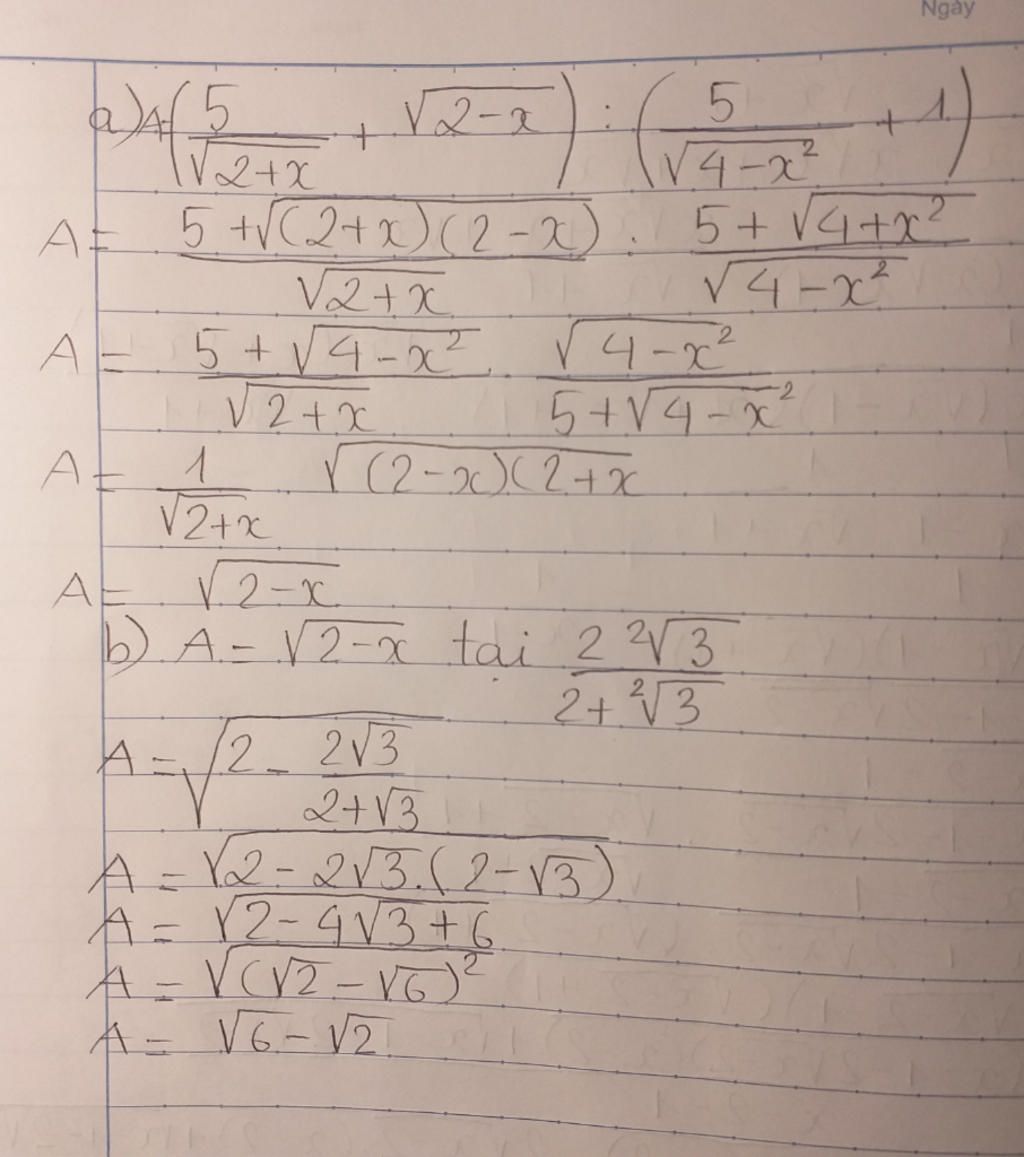 Ngày
a) A=(5/√(2+x) + √(2-x)) : (5/√(4-x²) + 1)
A = (5+√((2+x)(2-x)))/√(2+x) : (5+√(4+x²))/√(4-x²)
A = (5+√(4-x²))/√(2+x) . √(4-x²)/(5+√(4-x²))
A = 1/√(2+x) . √((2-x)(2+x
A = √(2-x)
b) A = √(2-x) tại (2 ²√3)/(2+ ²√3)
A = √(2 - 2√3/(2+√3))
A = √(2-2√3.(2-√3))
A = √(2-4√3+6)
A = √((√2-√6)²)
A = √6-√2